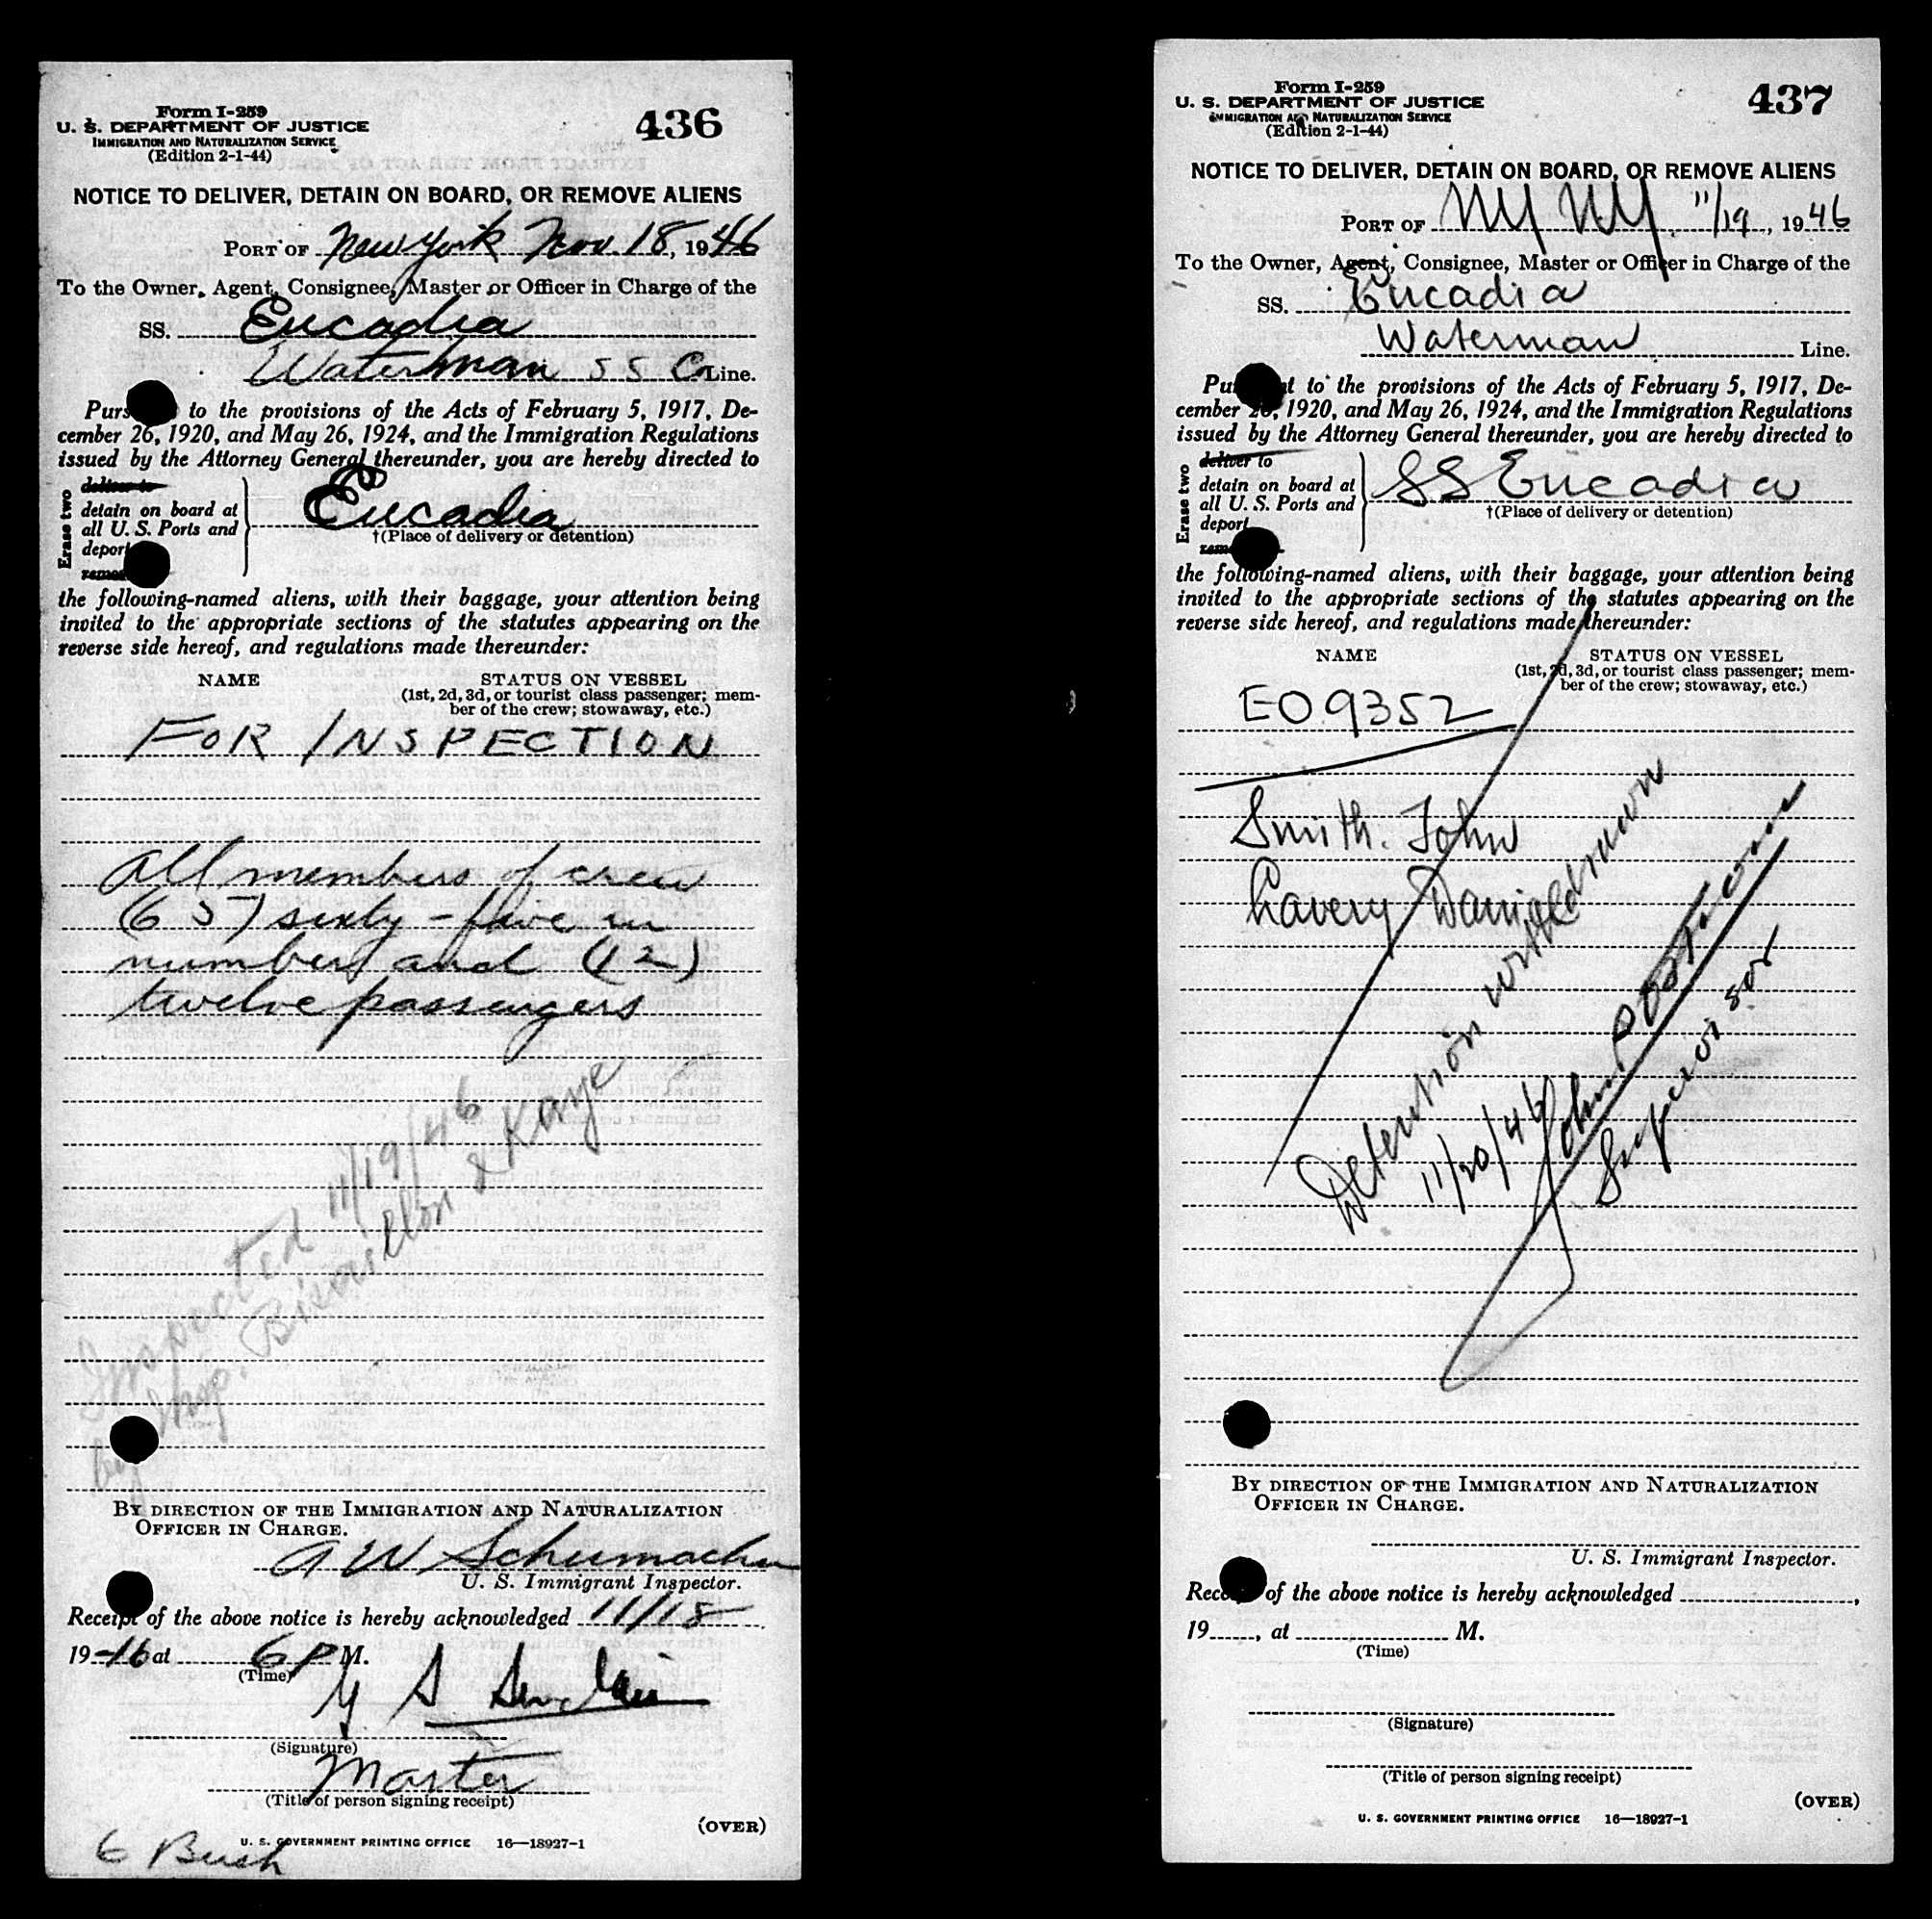 Form I-259
U. S. DEPARTMENT OF JUSTICE
IMMIGRATION AND NATURALIZATION SERVICE
(Edition 2-1-44)
436
NOTICE TO DELIVER, DETAIN ON BOARD, OR REMOVE ALIENS
PORT OF New York Nov. 18, 1946
To the Owner, Agent, Consignee, Master or Officer in Charge of the
SS. Eucadia
Waterman S S Co Line.
Purs to the provisions of the Acts of February 5, 1917, De-
cember 26, 1920, and May 26, 1924, and the Immigration Regulations
issued by the Attorney General thereunder, you are hereby directed to
Erase two
deliver to
detain on board at
all U. S. Ports and
deport
remo
Eucadia
†(Place of delivery or detention)
the following-named aliens, with their baggage, your attention being
invited to the appropriate sections of the statutes appearing on the
reverse side hereof, and regulations made thereunder:
NAME STATUS ON VESSEL
(1st, 2d, 3d, or tourist class passenger; mem-
ber of the crew; stowaway, etc.)
FOR INSPECTION
All members of crew
(65) sixty-five in
number and (12)
twelve passengers
Inspected 11/19/46
by Insp. & Kaye
BY DIRECTION OF THE IMMIGRATION AND NATURALIZATION
OFFICER IN CHARGE.
A W Schumacher
U. S. Immigrant Inspector.
Receipt of the above notice is hereby acknowledged 11/18
1946 at 6 P M.
(Time)
(Signature)
Master
(Title of person signing receipt)
(OVER)
U. S. GOVERNMENT PRINTING OFFICE 16—18927-1
6 Bush
Form I-259
U. S. DEPARTMENT OF JUSTICE
IMMIGRATION AND NATURALIZATION SERVICE
(Edition 2-1-44)
437
NOTICE TO DELIVER, DETAIN ON BOARD, OR REMOVE ALIENS
PORT OF NY NY. 11/19, 1946
To the Owner, Agent, Consignee, Master or Officer in Charge of the
SS. Eucadia
Waterman Line.
Pu t to the provisions of the Acts of February 5, 1917, De-
cember 26, 1920, and May 26, 1924, and the Immigration Regulations
issued by the Attorney General thereunder, you are hereby directed to
Erase two
deliver to
detain on board at
all U. S. Ports and
deport
rem
SS Eucadia
†(Place of delivery or detention)
the following-named aliens, with their baggage, your attention being
invited to the appropriate sections of the statutes appearing on the
reverse side hereof, and regulations made thereunder:
NAME STATUS ON VESSEL
(1st, 2d, 3d, or tourist class passenger; mem-
ber of the crew; stowaway, etc.)
EO 9352
Smith. John
Lavery Daniel
Detention withdrawn
11/20/46 John P Bostrom
Supervisor
BY DIRECTION OF THE IMMIGRATION AND NATURALIZATION
OFFICER IN CHARGE.
U. S. Immigrant Inspector.
Rece of the above notice is hereby acknowledged ,
19 , at M.
(Time)
(Signature)
(Title of person signing receipt)
(OVER)
U. S. GOVERNMENT PRINTING OFFICE 16—18927-1